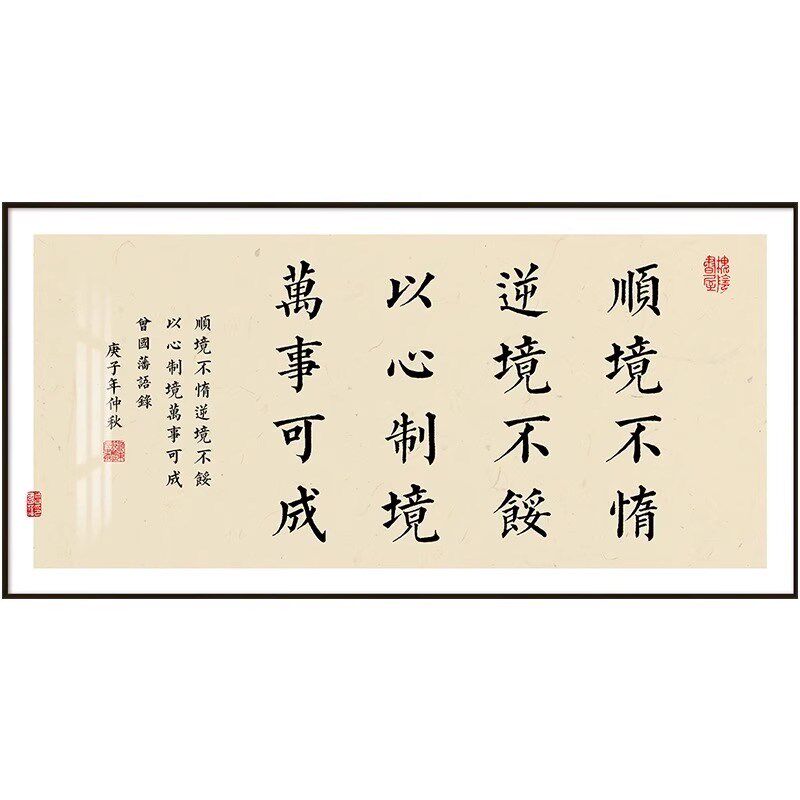 順境不惰
逆境不餒
以心制境
萬事可成
順境不惰逆境不餒
以心制境萬事可成
曾國藩語錄
庚子年仲秋